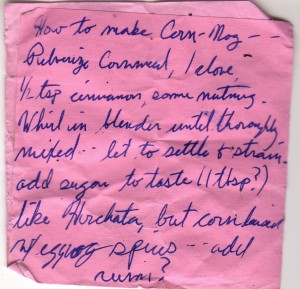 How to make Corn-Nog --
Pulverize Cornmeal, 1 clove,
1/2 tsp cinnamon, some nutmeg.
Whirl in blender until thoroughly
mixed -- let to settle & strain.
add sugar to taste (1 tbsp?)
like Horchata, but combined
w/ eggnog spices -- add
rum?